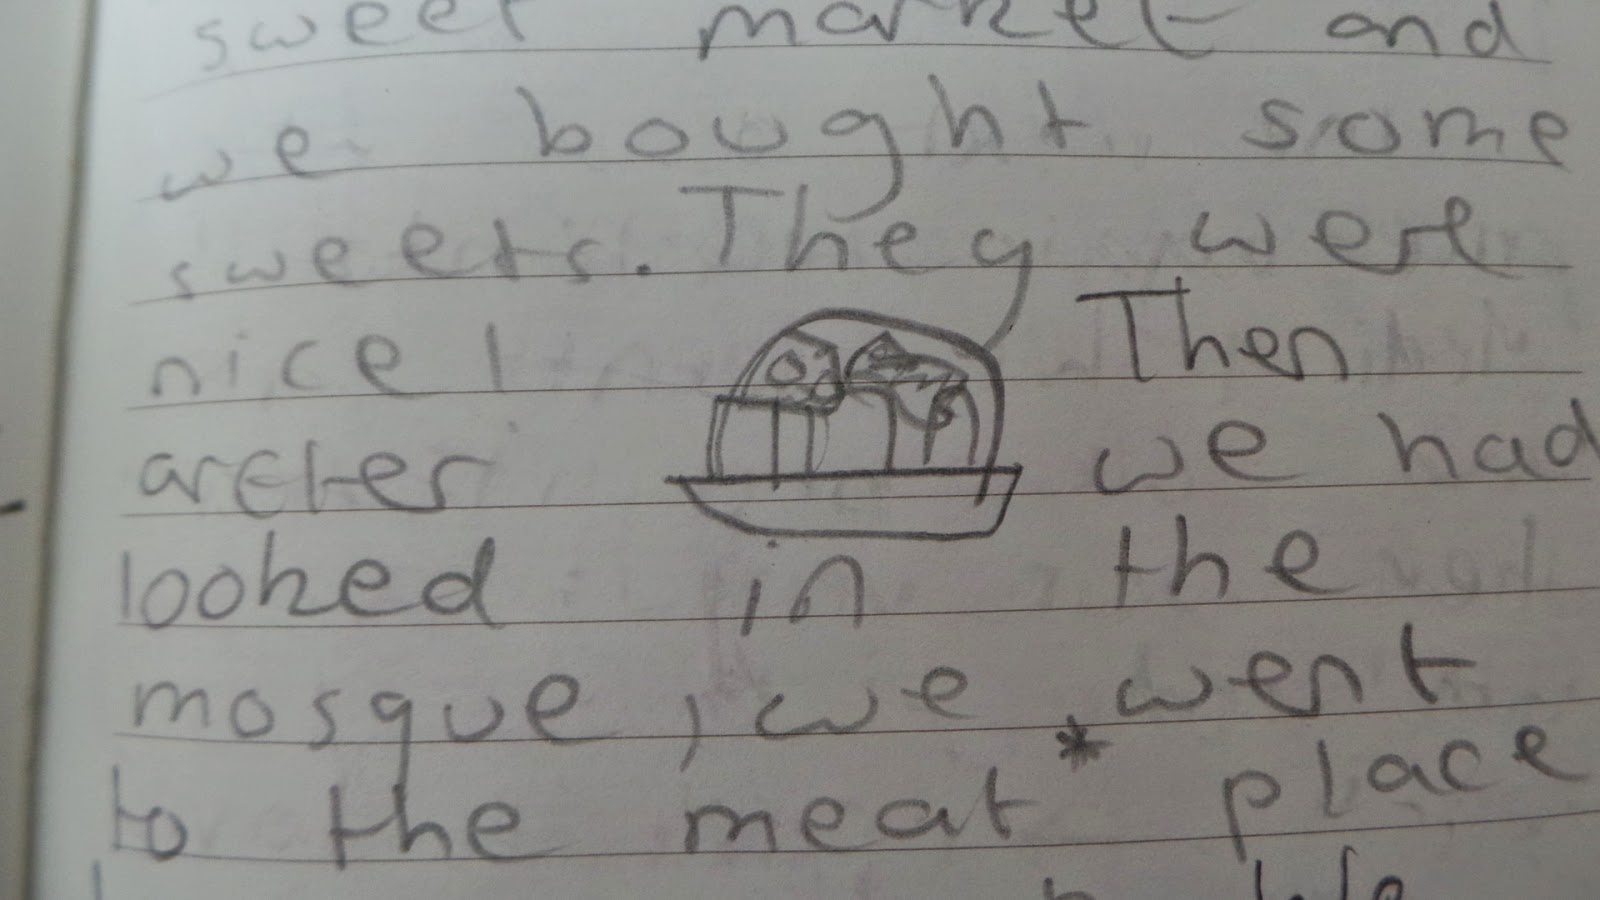 sweet market and
we bought some
sweets. They were
nice! Then
arfter we had
looked in the
mosque, we went
to the meat* place